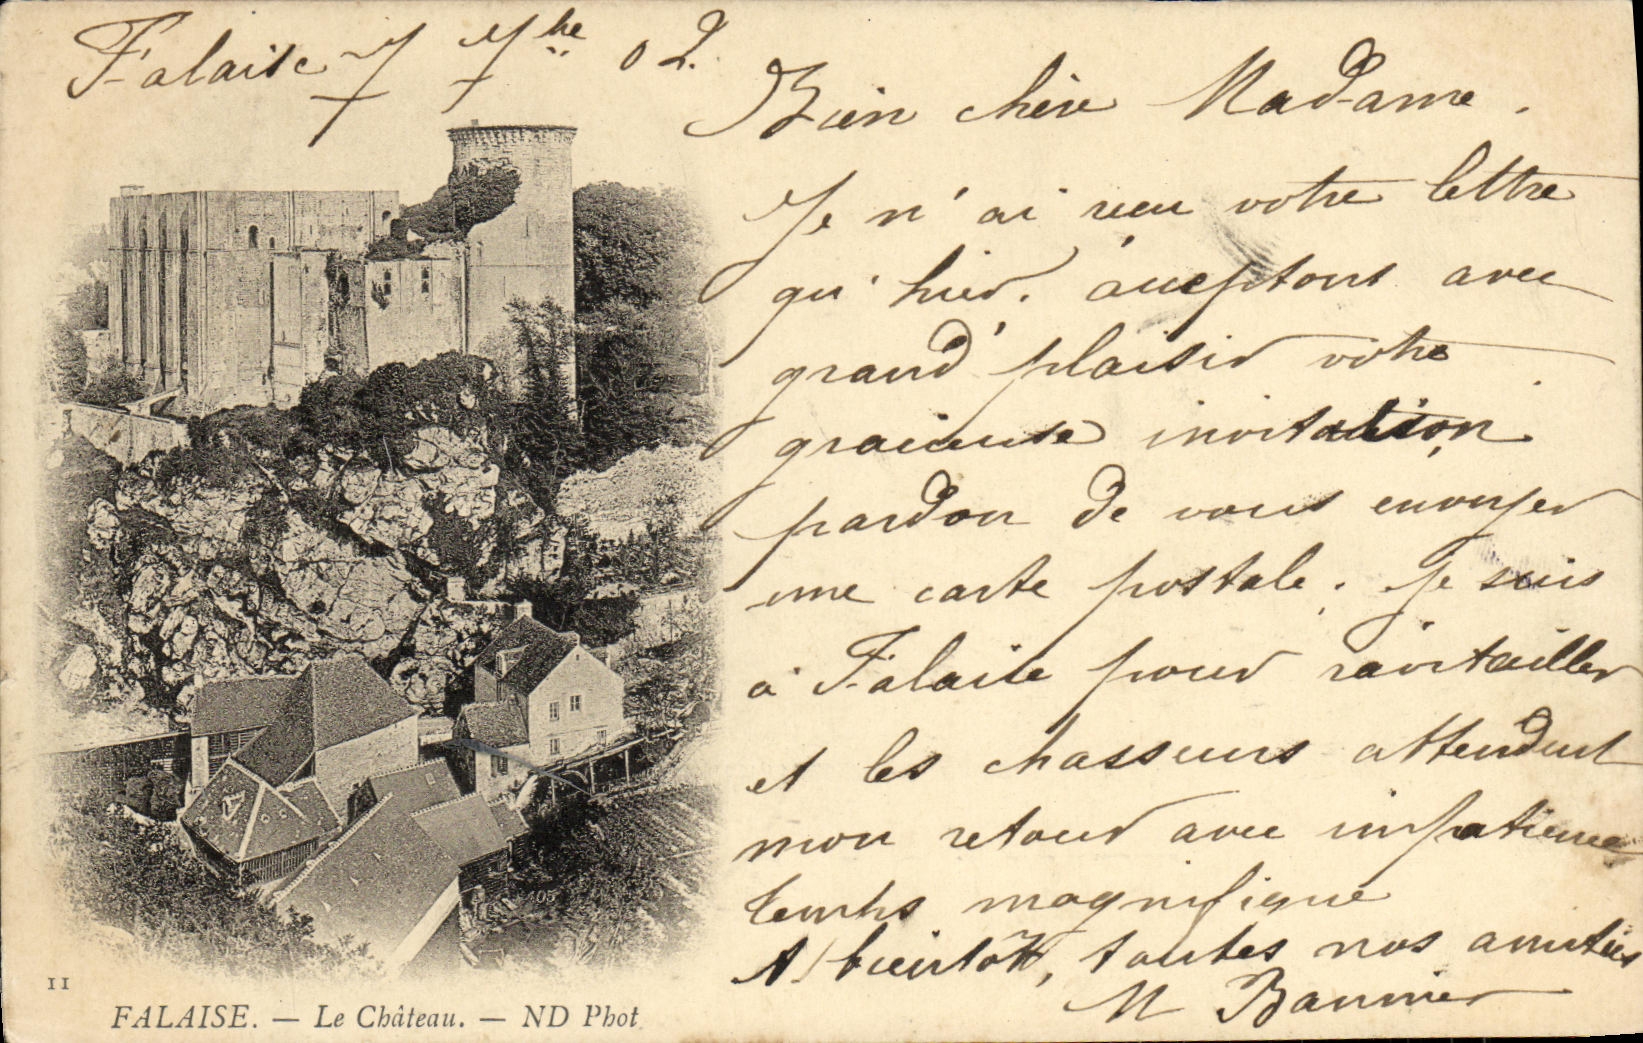 Falaise 7 7bre 02.
Bien chère Madame.
Je n'ai reçu votre lettre
qu'hier. acceptons avec
grand plaisir votre
gracieuse invitation
pardon de vous envoyer
une carte postale. Je suis
à Falaise pour ravitailler
et les chasseurs attendent
mon retour avec impatience
temps magnifique
A bientôt, toutes nos amitiés
M
405
11
FALAISE. — Le Château. — ND Phot